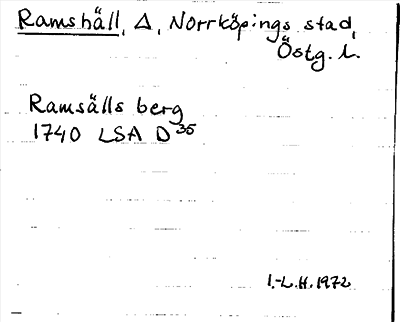 Ramshäll, Δ, Norrköpings stad,
Östg. l.
Ramsälls berg
1740 LSA D 35
I.-L.H. 1972